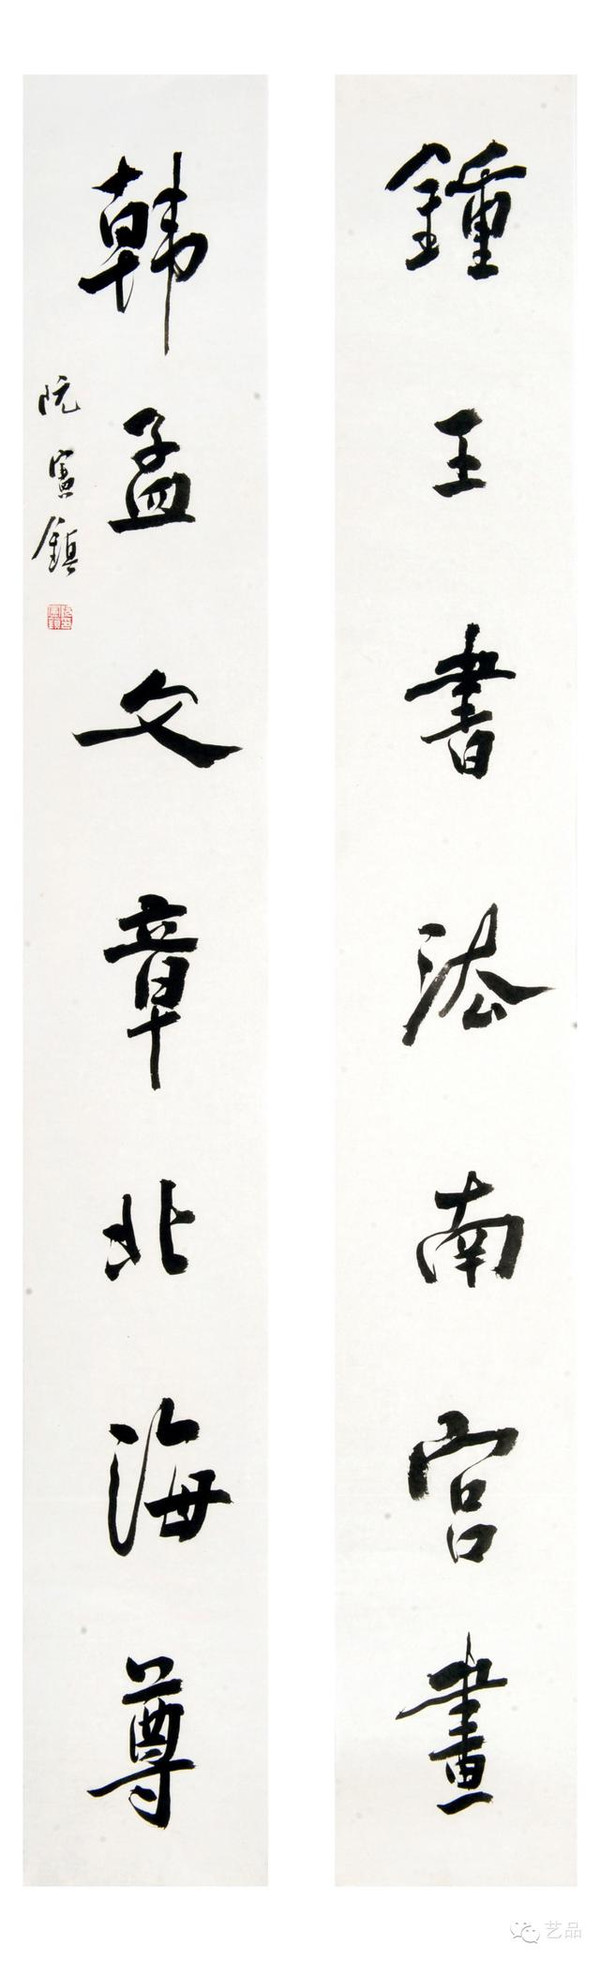 鍾王書法南宮畫
韓孟文章北海尊
阮憲鎮
艺品